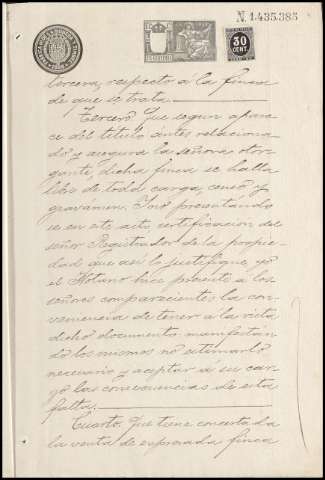 N. 1.435.385
30
CENT.
tercera, respecto á la finca
de que se trata.
Tercero. Que segun apare
ce del titulo antes relaciona
do y asegura la señora otor-
gante, dicha finca se halla
libre de toda carga, censo y
gravámen. Y no presentando
se en este acto certificacion del
señor Registrador de la propie-
dad que asi lo justifique, yo
el Notario hice presente á los
señores comparecientes la con-
veniencia de tener á la vista
dicho documento manifestan
do los mismos no estimarlo
necesario y aceptar á su car
go las consecuencias de esta
falta.
Cuarto. Que tiene concertada
la venta de expresada finca